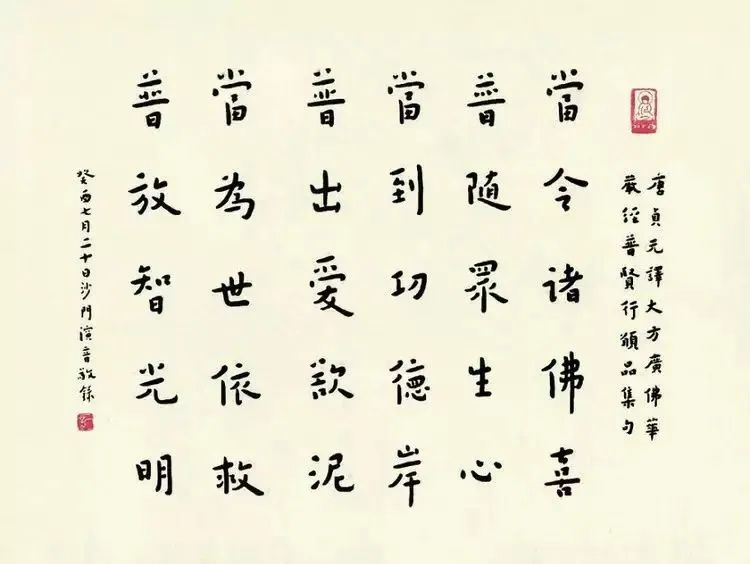 唐貞元譯大方廣佛華
嚴經普賢行願品集句
當令諸佛喜
普随眾生心
當到功德岸
普出愛欲泥
當為世依救
普放智光明
癸酉七月二十日沙門演音敬録